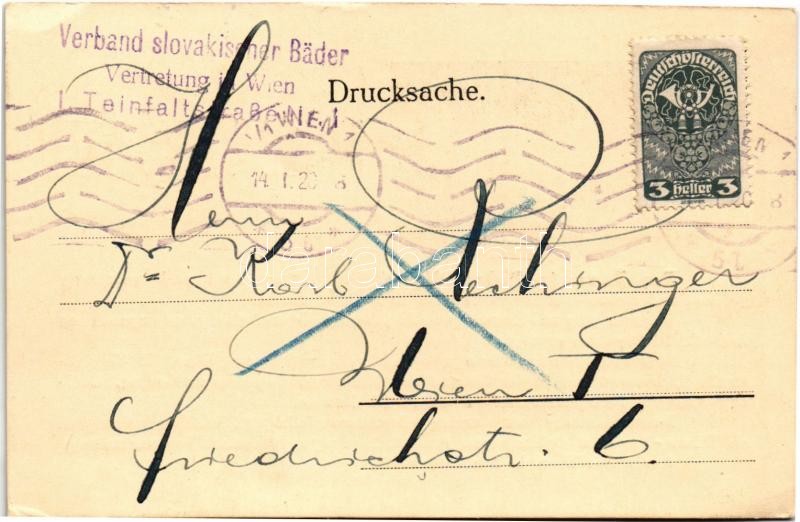 Verband slovakischer Bäder
Vertretung in Wien
I. Teinfaltstraße
Drucksache.
Deutschösterreich
3 Heller 3
WIEN 1
14. I. 20
Herrn
Dr. Karl
Wien I
Friedrichstr. 6.
51
darabanth